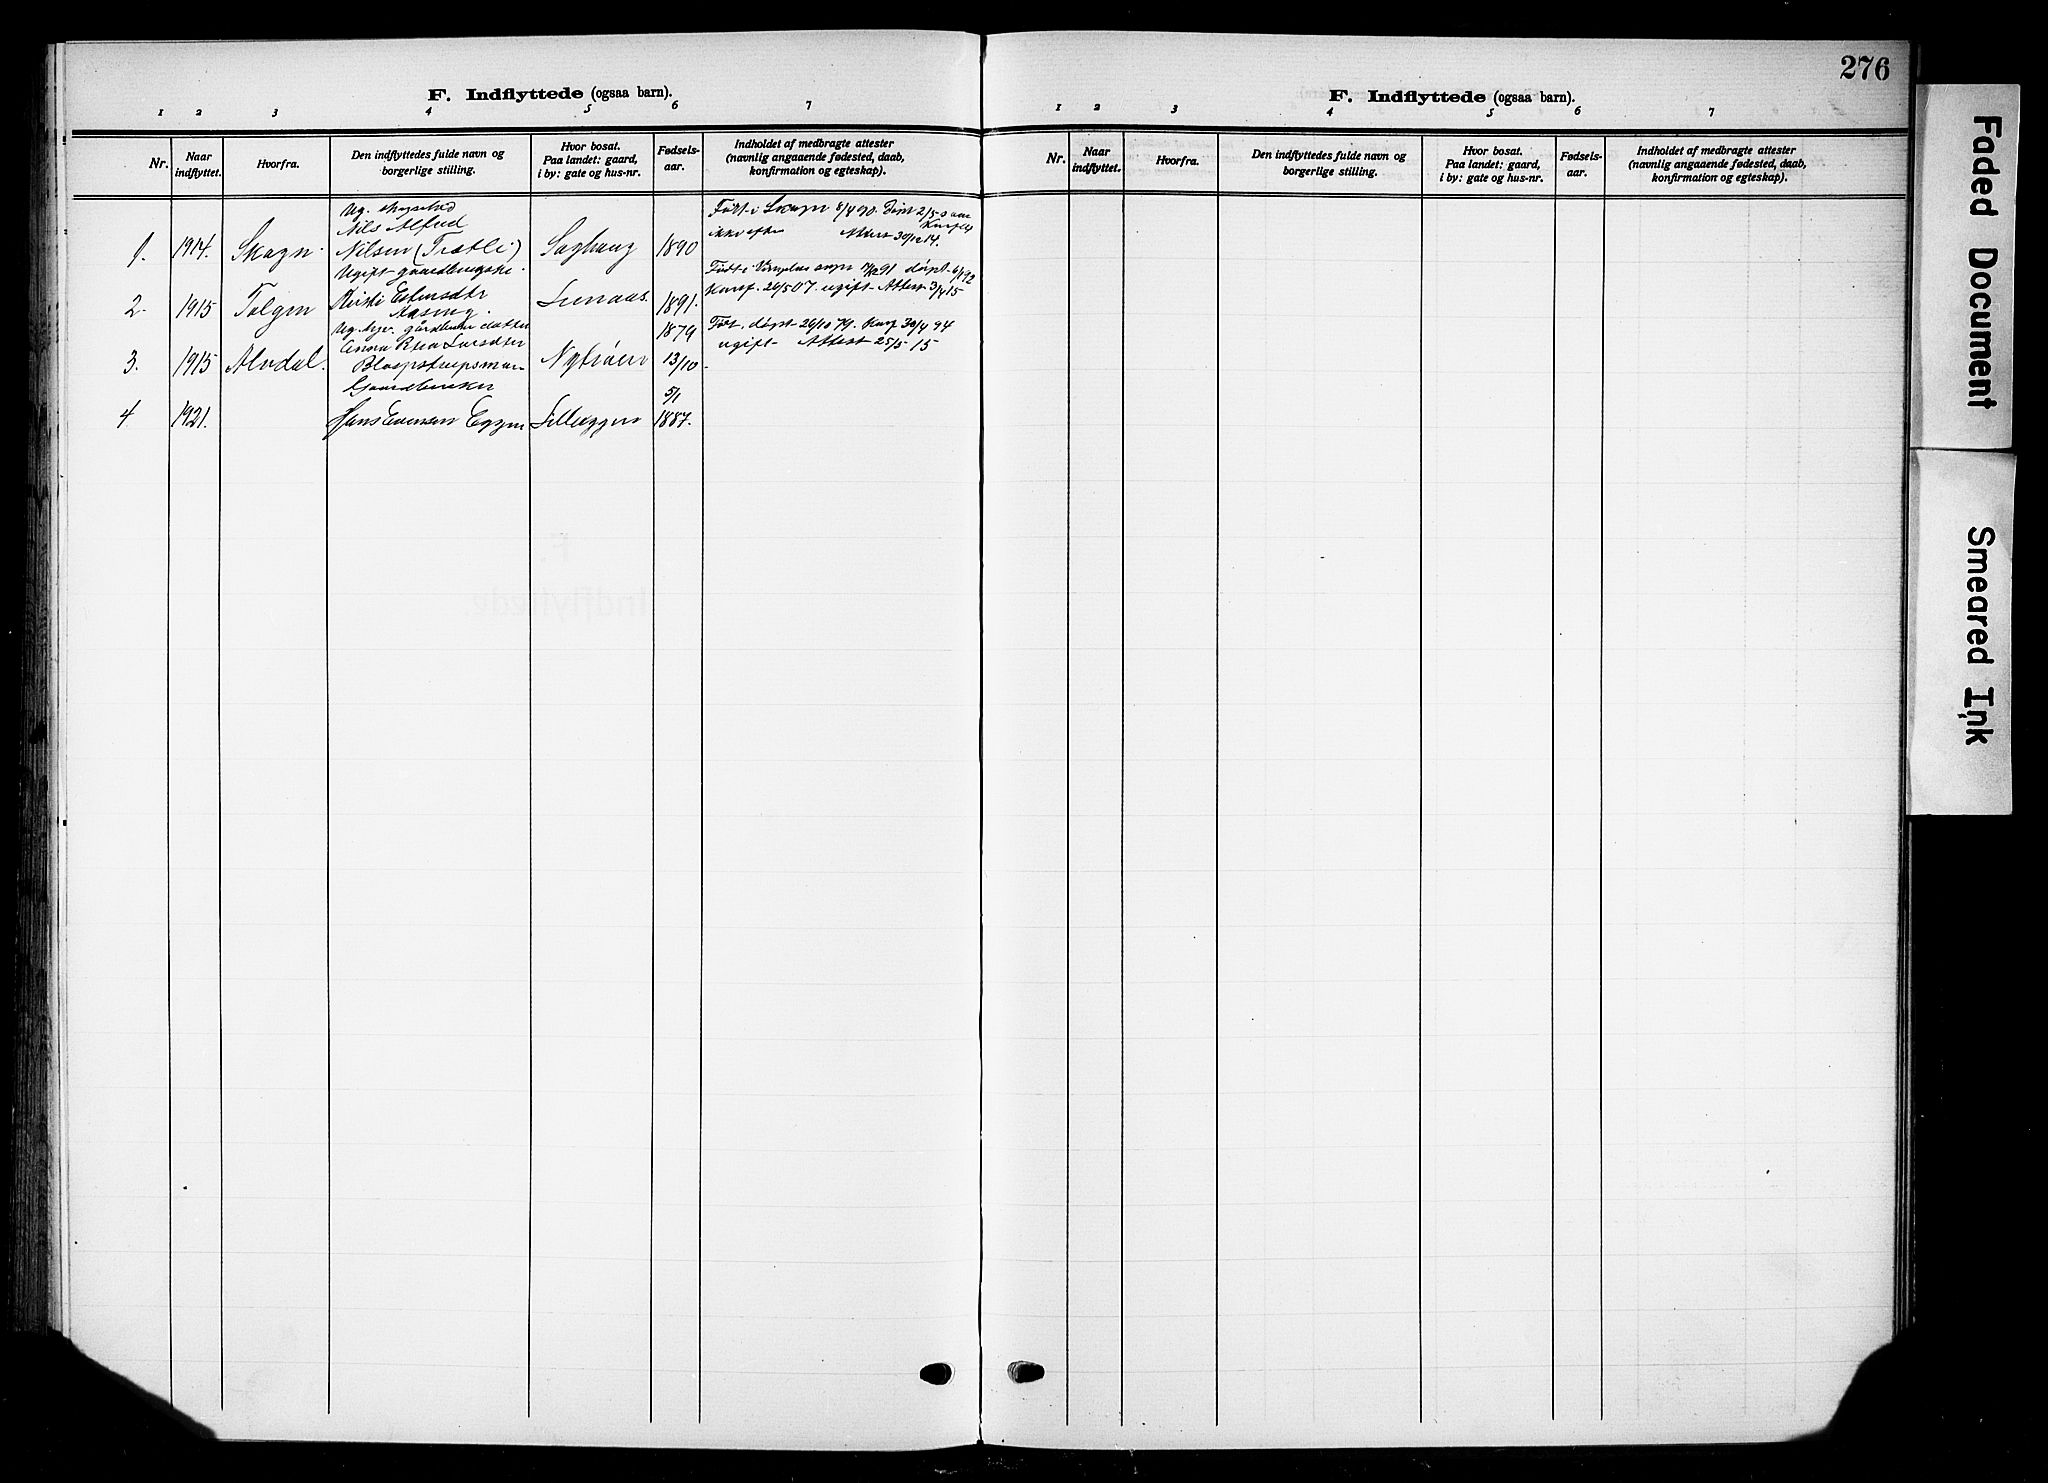 276
F. Indflyttede (ogsaa barn).
1 2 3 4 5 6 7
Nr. Naar indflyttet. Hvorfra. Den indflyttedes fulde navn og borgerlige stilling. Hvor bosat. Paa landet: gaard, i by: gate og hus-nr. Fødsels-aar. Indholdet af medbragte attester (navnlig angaaende fødested, daab, konfirmation og egteskap).
Ug.
Nils Alfred
1. 1914. Skogn. Nilsen (Trætli) Soghaug 1890
Født i Skogn 6/4 90. Døbt 2/5 s aar
ikke efter Attest 30/12 14.
Ugift gaardbrugske.
2. 1915 Tolgen Kirsti Estensdtr 1891.
Født i Vingelen sogn 91 døpt 92
Konf. 26/5 07. ugift. Attest 3/4 15
Ug. gårdbruker datter
Anna Larsdtr
3. 1915 Alvdal. Nytrøen 1879 13/10
Født, døpt 26/10 79. Konf 30/4 94
ugift. Attest 25/5 15
Gaardbruker
4 1921. Hans Evensen Eggen Lilleeggen 5/1 1887.
F. Indflyttede (ogsaa barn).
1 2 3 4 5 6 7
Nr. Naar indflyttet. Hvorfra. Den indflyttedes fulde navn og borgerlige stilling. Hvor bosat. Paa landet: gaard, i by: gate og hus-nr. Fødsels-aar. Indholdet af medbragte attester (navnlig angaaende fødested, daab, konfirmation og egteskap).
Faded Document
Smeared Ink